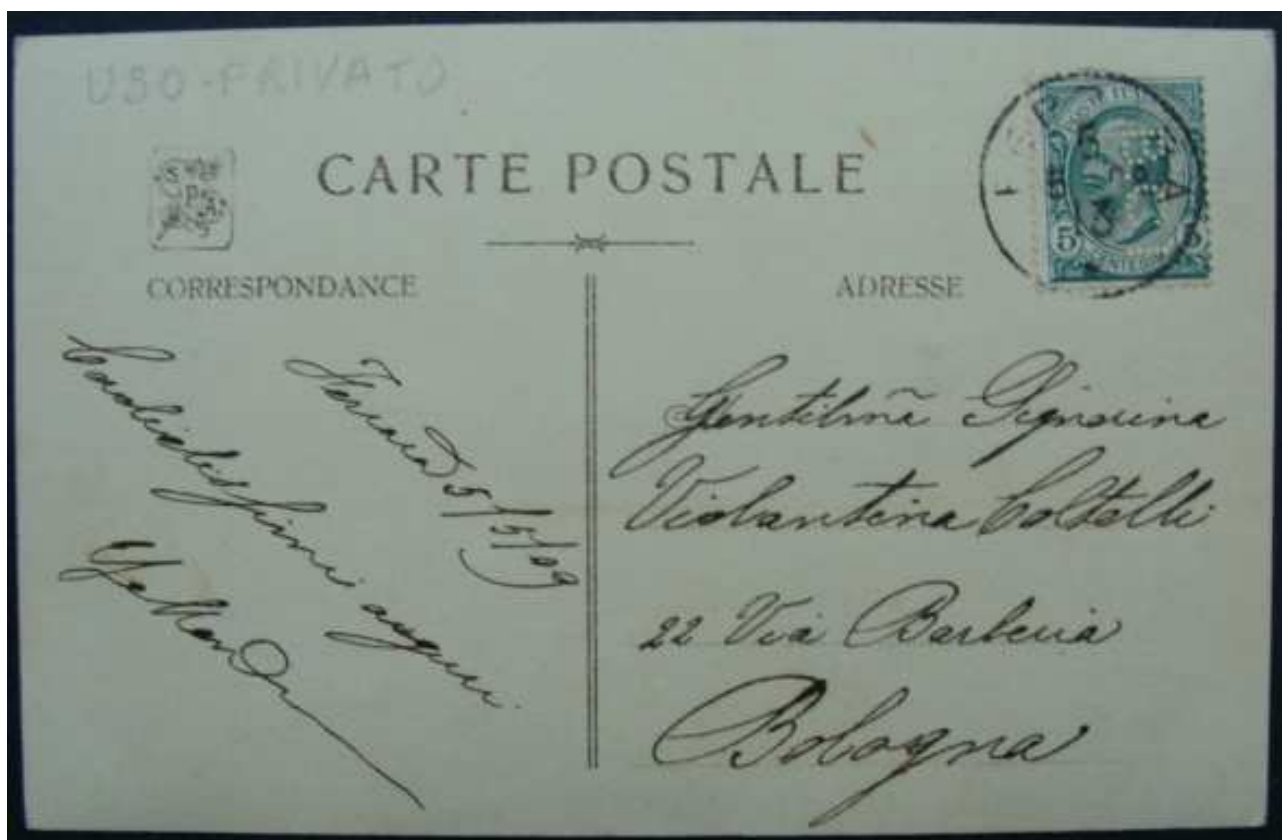 USO-PRIVATO
CARTE POSTALE
CORRESPONDANCE
ADRESSE
Ferrara 5/5/09
Cordialissimi auguri
Gentilmã Signorina
Violantina Coltelli
22 Via Barberia
Bologna
5